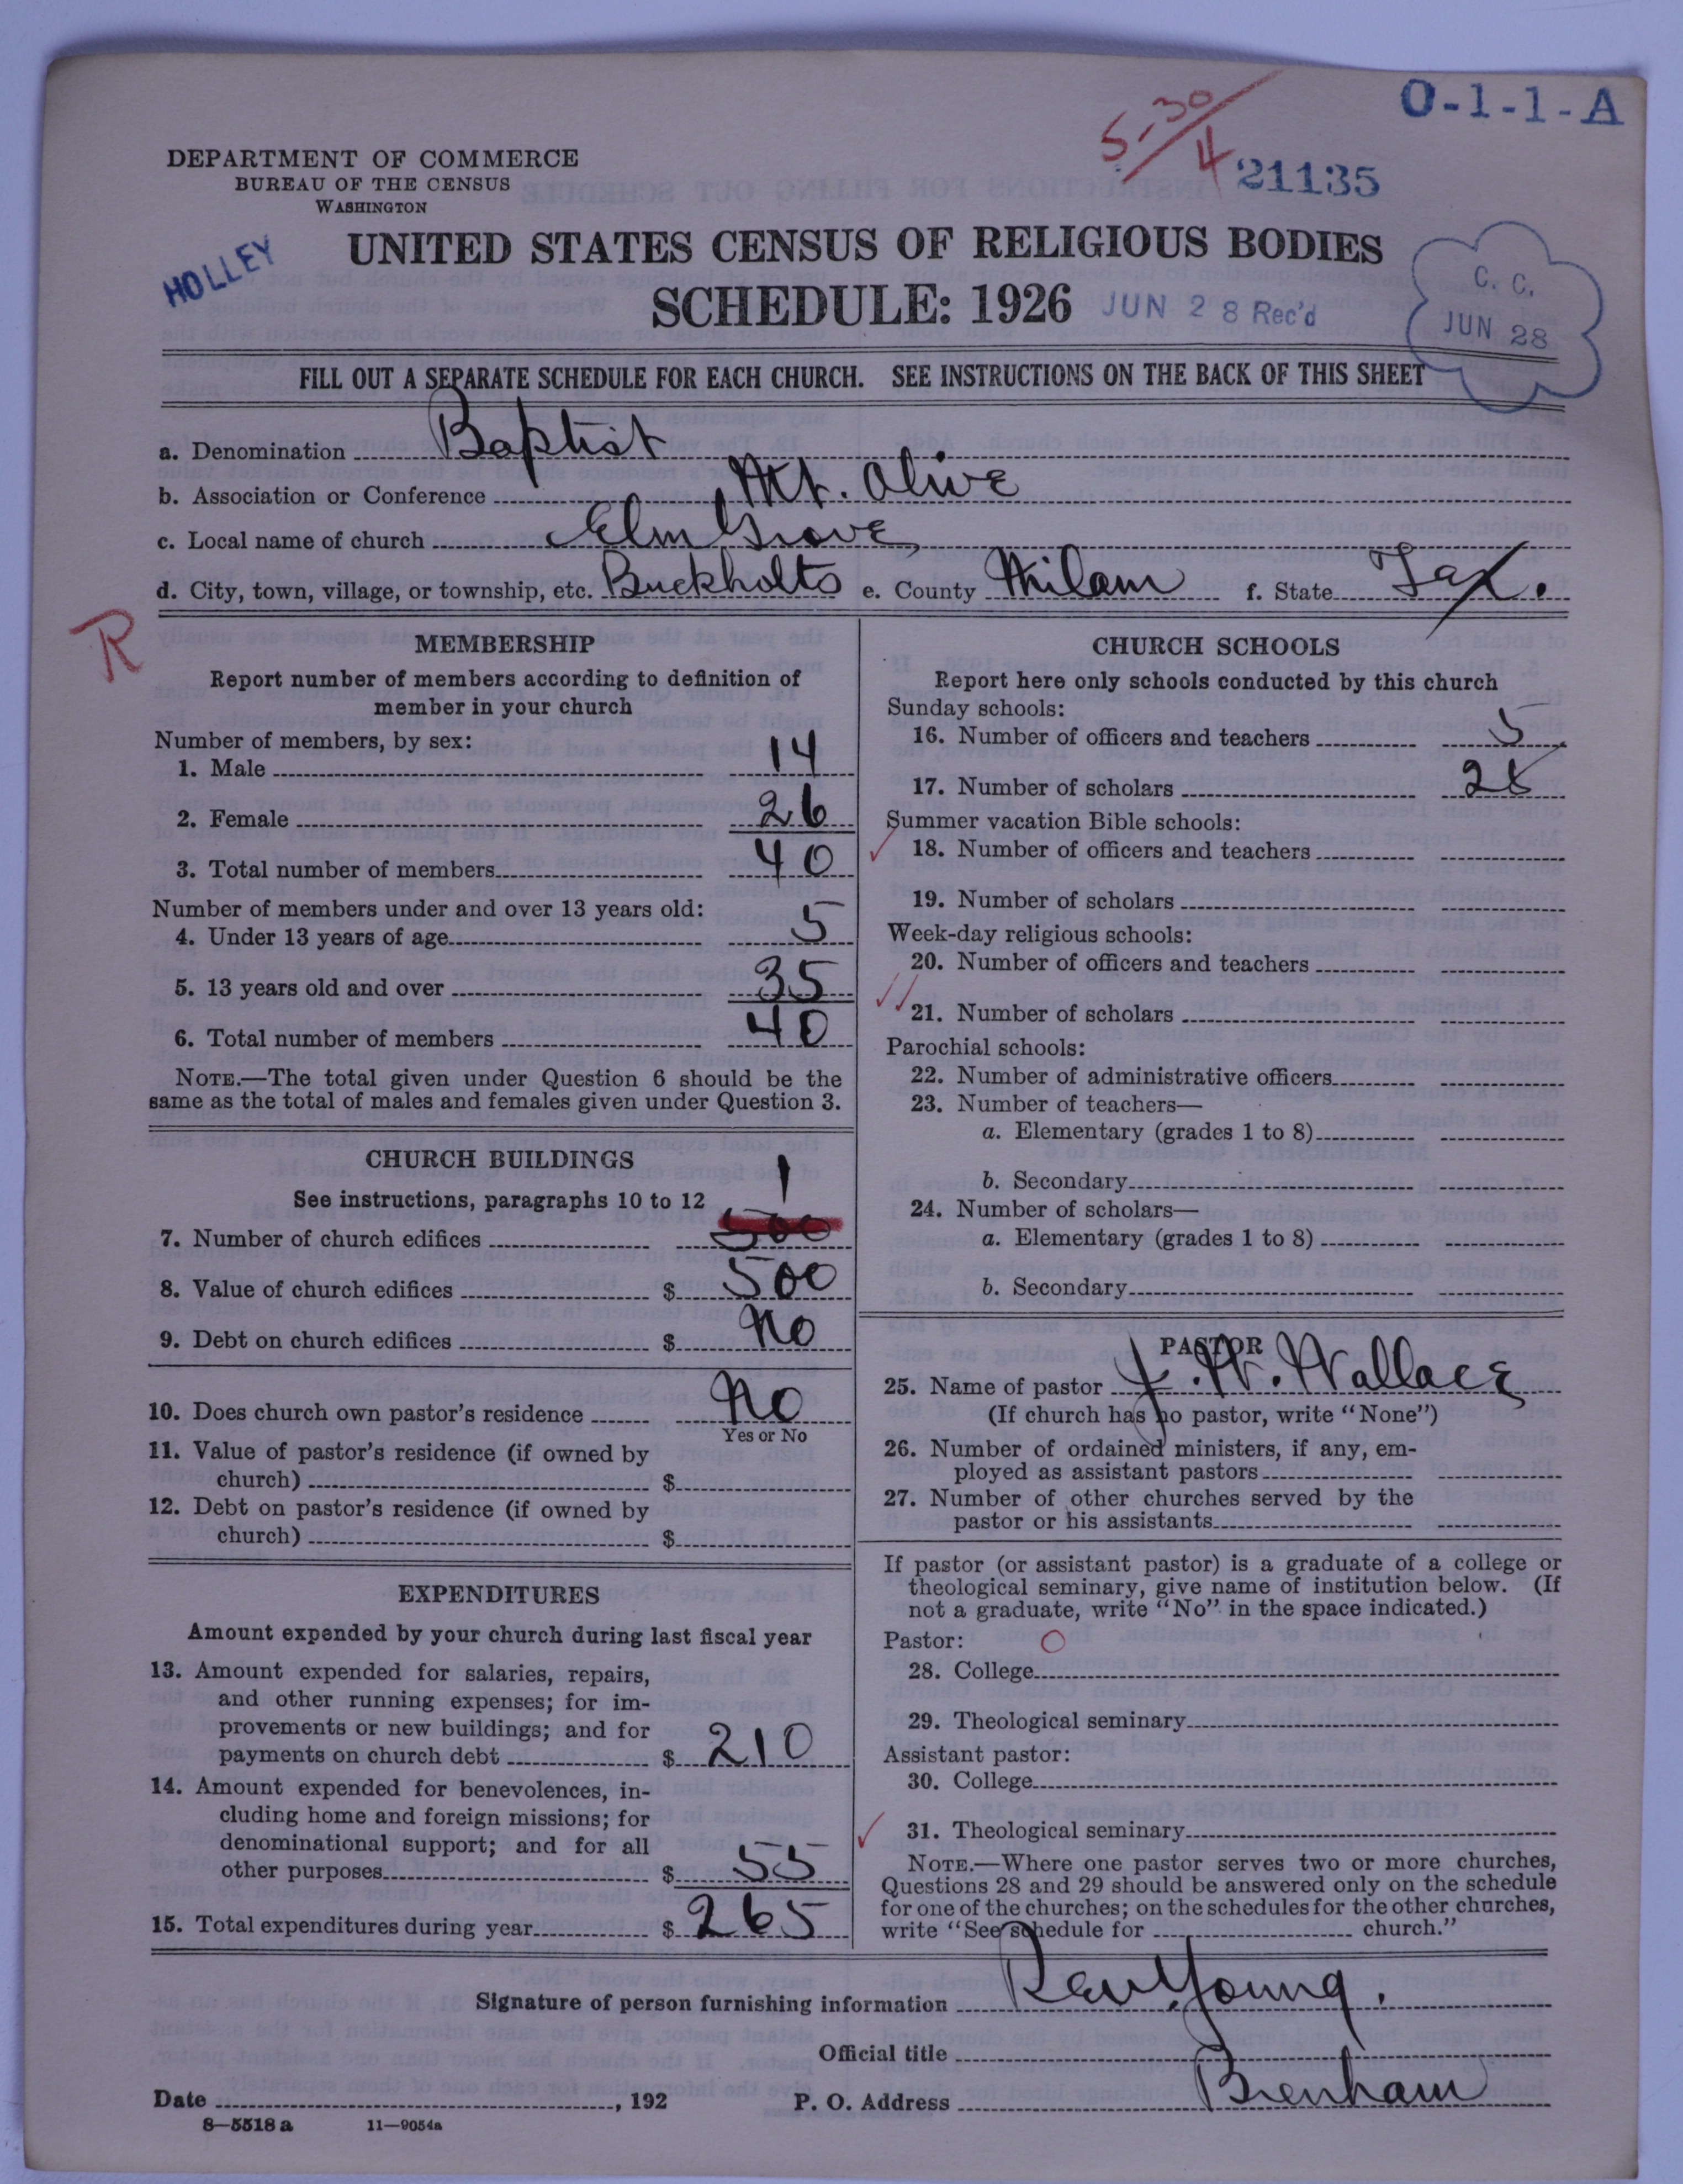 O-1-1-A
5-30/4
21135
DEPARTMENT OF COMMERCE
BUREAU OF THE CENSUS
WASHINGTON
HOLLEY
UNITED STATES CENSUS OF RELIGIOUS BODIES
SCHEDULE: 1926
JUN 28 Rec'd
C. C.
JUN 28
FILL OUT A SEPARATE SCHEDULE FOR EACH CHURCH. SEE INSTRUCTIONS ON THE BACK OF THIS SHEET
a. Denomination Baptist
b. Association or Conference Mt. Olive
c. Local name of church Elm Grove
d. City, town, village, or township, etc. Buckholts e. County Milam f. State Tex.
R
MEMBERSHIP
Report number of members according to definition of
member in your church
Number of members, by sex:
1. Male 14
2. Female 26
3. Total number of members 40
Number of members under and over 13 years old:
4. Under 13 years of age 5
5. 13 years old and over 35
6. Total number of members 40
NOTE.—The total given under Question 6 should be the
same as the total of males and females given under Question 3.
CHURCH BUILDINGS
See instructions, paragraphs 10 to 12
1
7. Number of church edifices 500
8. Value of church edifices $ 500
9. Debt on church edifices $ No
10. Does church own pastor's residence No
Yes or No
11. Value of pastor's residence (if owned by
church) $
12. Debt on pastor's residence (if owned by
church) $
EXPENDITURES
Amount expended by your church during last fiscal year
13. Amount expended for salaries, repairs,
and other running expenses; for im-
provements or new buildings; and for
payments on church debt $ 210
14. Amount expended for benevolences, in-
cluding home and foreign missions; for
denominational support; and for all
other purposes $ 55
15. Total expenditures during year $ 265
CHURCH SCHOOLS
Report here only schools conducted by this church
Sunday schools:
16. Number of officers and teachers 5
17. Number of scholars
Summer vacation Bible schools:
18. Number of officers and teachers
19. Number of scholars
Week-day religious schools:
20. Number of officers and teachers
21. Number of scholars
Parochial schools:
22. Number of administrative officers
23. Number of teachers—
a. Elementary (grades 1 to 8)
b. Secondary
24. Number of scholars—
a. Elementary (grades 1 to 8)
b. Secondary
PASTOR
25. Name of pastor J. W. Wallace
(If church has no pastor, write "None")
26. Number of ordained ministers, if any, em-
ployed as assistant pastors
27. Number of other churches served by the
pastor or his assistants
If pastor (or assistant pastor) is a graduate of a college or
theological seminary, give name of institution below. (If
not a graduate, write "No" in the space indicated.)
Pastor: O
28. College
29. Theological seminary
Assistant pastor:
30. College
31. Theological seminary
NOTE.—Where one pastor serves two or more churches,
Questions 28 and 29 should be answered only on the schedule
for one of the churches; on the schedules for the other churches,
write "See schedule for church."
Signature of person furnishing information Rev. Young.
Official title
Date , 192
P. O. Address Brenham
8—5518 a 11—9054a